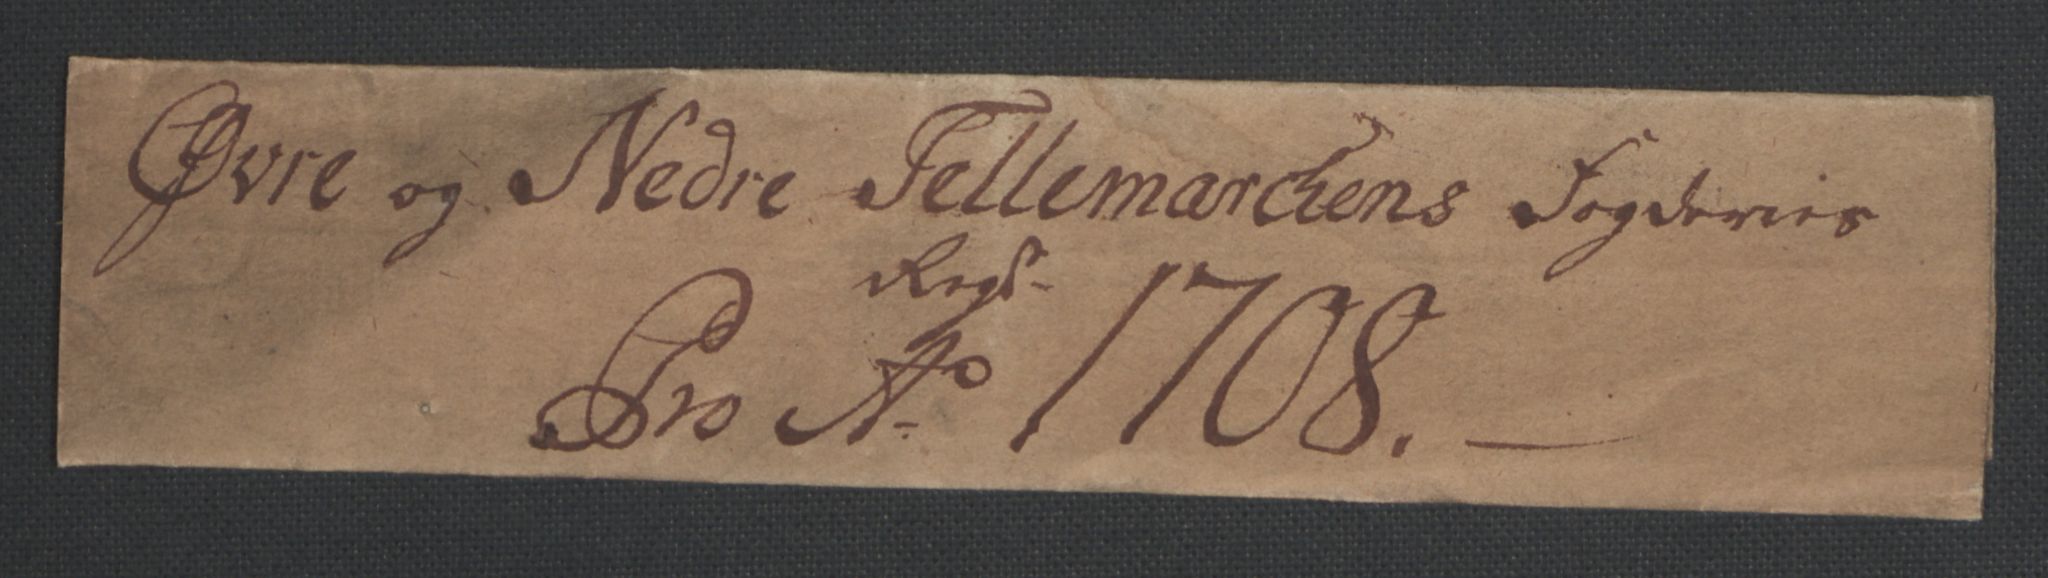 Øvre og Nedre Tellemarchens Fogderies
Regsk.
Pro Ao 1708.